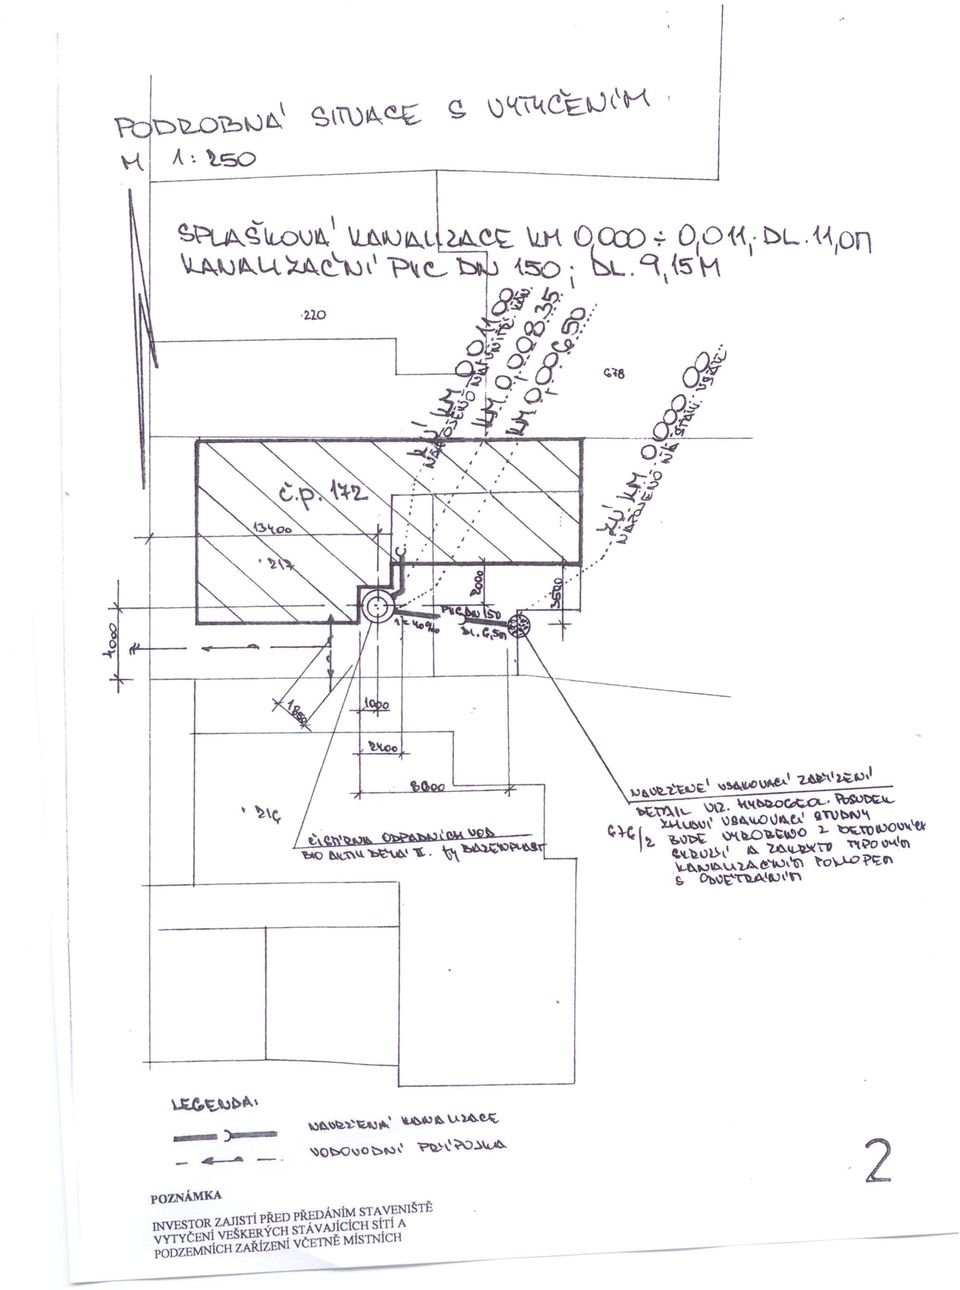 PODROBNÁ SITUACE S VYTYČENÍM
M 1:250
SPLAŠKOVÁ KANALIZACE KM 0,000 ÷ 0,011; DL. 11,0M
KANALIZAČNÍ PVC DN 150; DL. 9,15M
220
678
KÚ KM 0,011 00
NAPOJENO NA VNITŘ. KAN.
KM 0,008 35
KM 0,006 50
ZÚ KM 0,000 00
NAPOJENO NA
č.p. 172
13400
217
2000
3500
PVC DN 150
DL. 6,5M
4000
1850
1000
2400
8000
216
676/2
ČISTÍRNA ODPADNÍCH VOD
BIO AKTIV DELTA II. fy BAZENPLAST
NAVRŽENÉ VSAKOVACÍ ZAŘÍZENÍ
DETAIL VIZ. HYDROGEOL. POSUDEK
ZHLAVÍ VSAKOVACÍ STUDNY
BUDE VYROBENO Z BETONOVÝCH
SKRUŽÍ A ZAKRYTO TYPOVÝM
KANALIZAČNÍM POKLOPEM
S ODVĚTRÁNÍM
LEGENDA:
NAVRŽENÁ KANALIZACE
VODOVODNÍ PŘÍPOJKA
2
POZNÁMKA
INVESTOR ZAJISTÍ PŘED PŘEDÁNÍM STAVENIŠTĚ
VYTYČENÍ VEŠKERÝCH STÁVAJÍCÍCH SÍTÍ A
PODZEMNÍCH ZAŘÍZENÍ VČETNĚ MÍSTNÍCH